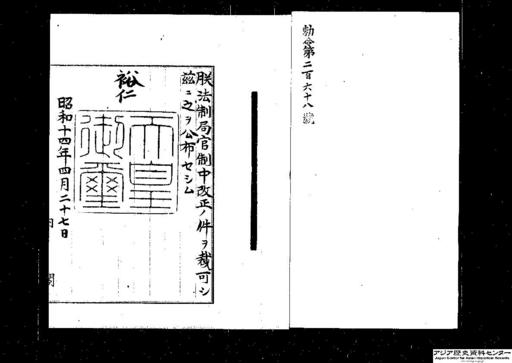 勅令第二百六十八號
朕法制局官制中改正ノ件ヲ裁可シ
茲ニ之ヲ公布セシム
裕仁
天皇
御璽
昭和十四年四月二十七日
内閣
アジア歴史資料センター
Japan Center for Asian Historical Records